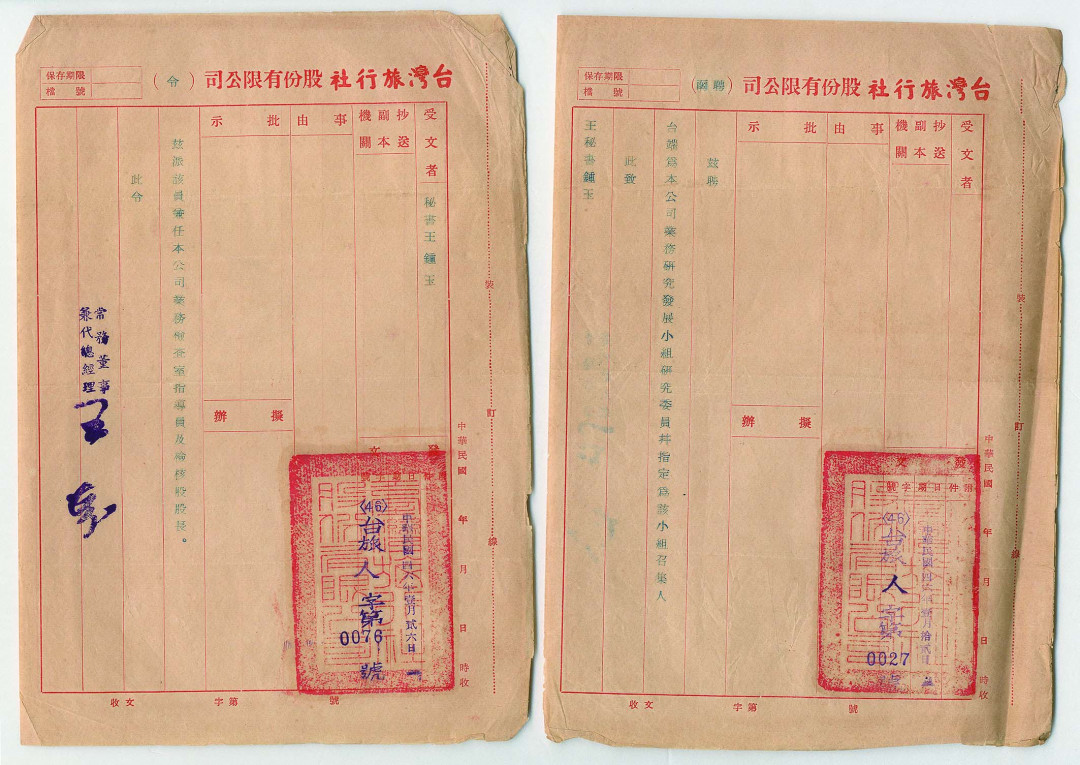 台灣旅行社股份有限公司（令）
保存期限
檔號
受文者
秘書王鍾玉
抄送
副本
機關
事由
批示
擬辦
茲派該員兼任本公司業務檢查室指導員及檢核股股長。
此令
常務董事
兼代總經理
發文
日期字號
中華民國四六年壹月貳六日
(46)台旅人字第0076號
中華民國 年 月 日 時收
裝 訂 線
收文 字第 號
台灣旅行社股份有限公司（聘函）
保存期限
檔號
受文者
抄送
副本
機關
事由
批示
擬辦
茲聘
台端為本公司業務研究發展小組研究委員并指定為該小組召集人
此致
王秘書鍾玉
發文
附件日期字號
中華民國四六年壹月拾貳日
(46)台旅人字第0027號
中華民國 年 月 日 時收
裝 訂 線
收文 字第 號